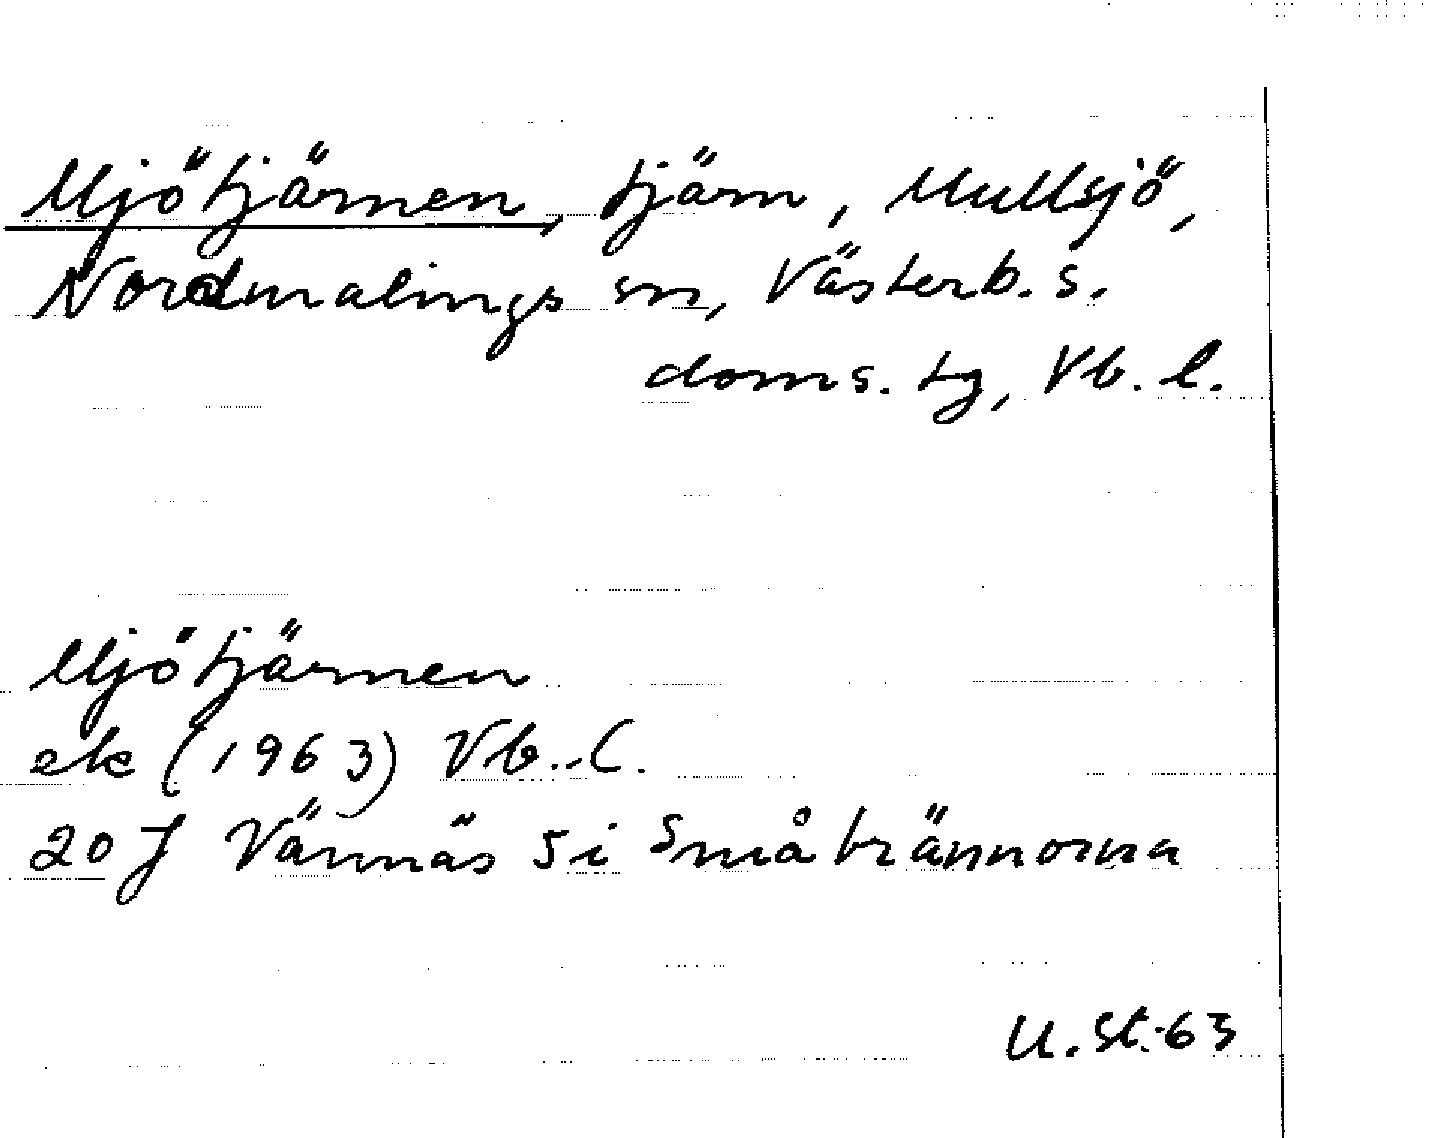 Mjötjärnen, tjärn, Mullsjö,
Nordmalings sn, Västerb. s.
doms. tg, Vb. l.
Mjötjärnen
ek (1963) Vb..l.
20 J Värnäs 5 i Småbrännorna
U. St. 63